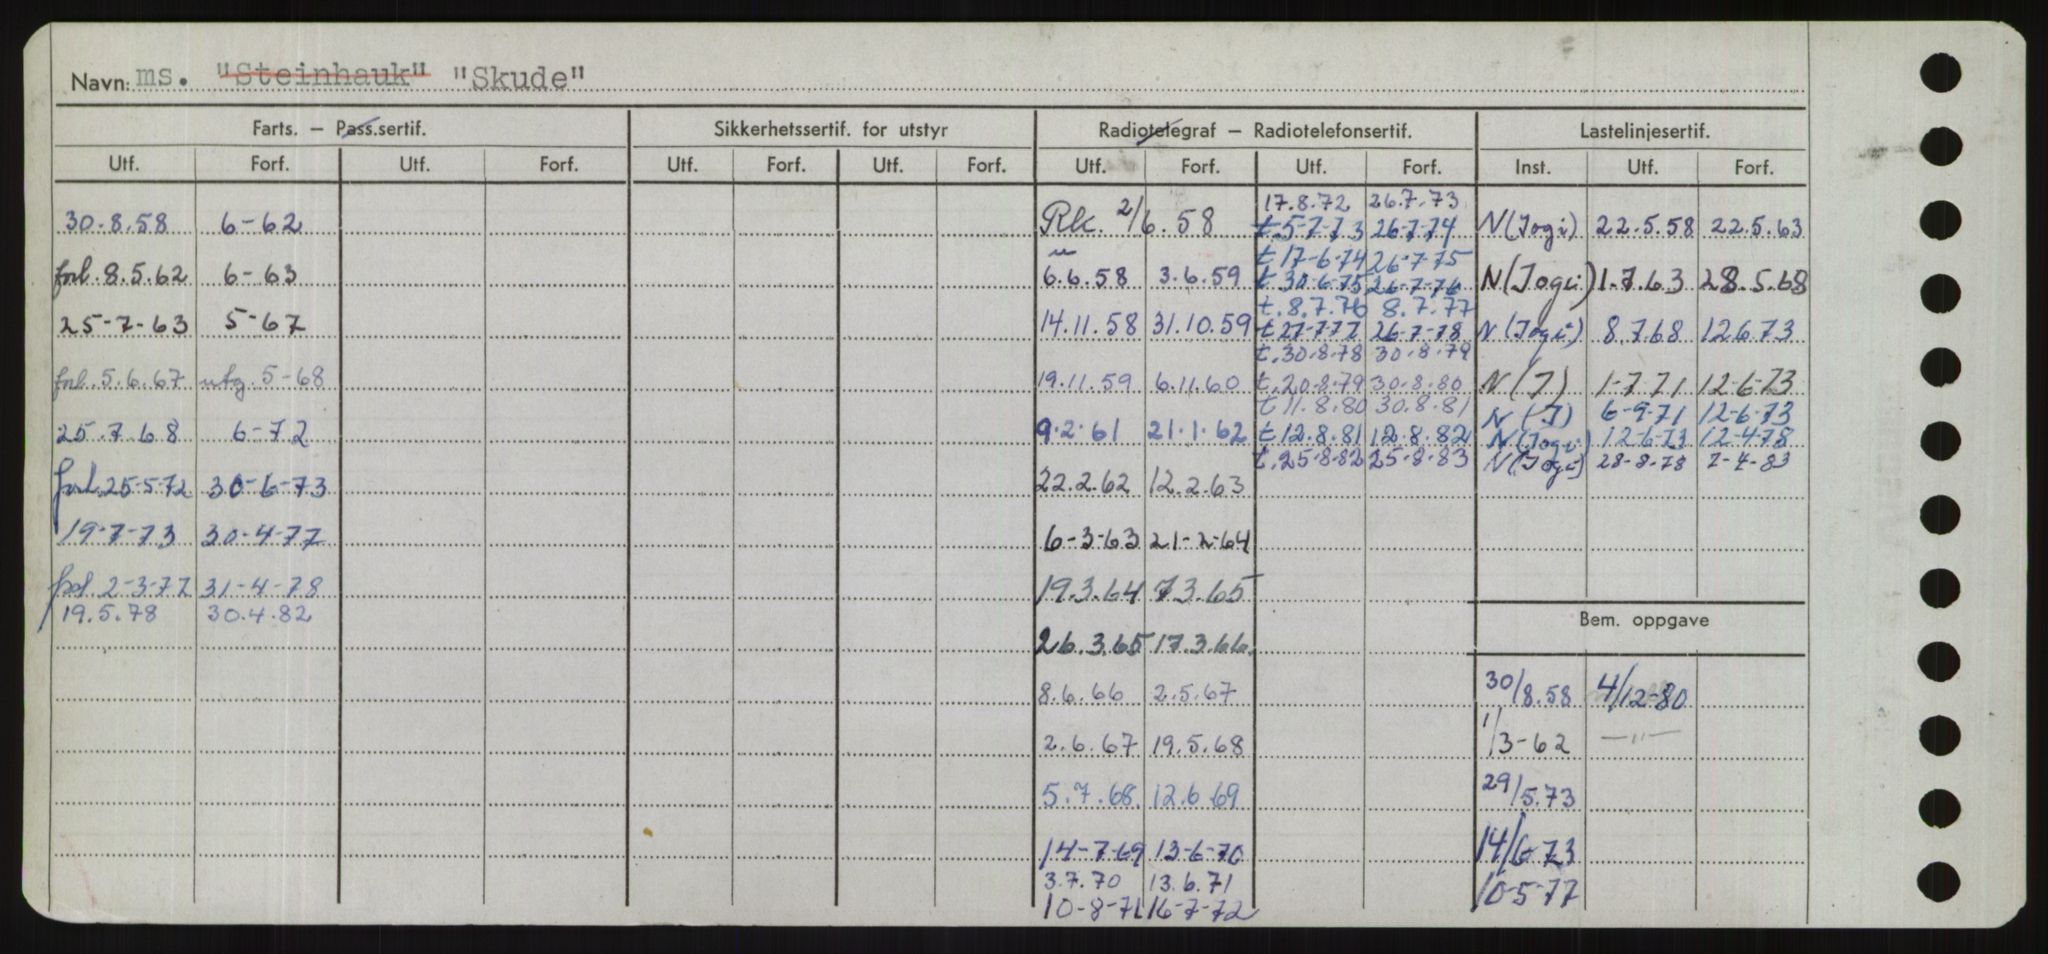 Navn: ms. "Steinhauk" "Skude"
Farts. – Pass.sertif. Sikkerhetssertif. for utstyr Radiotelegraf – Radiotelefonsertif. Lastelinjesertif.
Utf. Forf. Utf. Forf. Utf. Forf. Utf. Forf. Utf. Forf. Utf. Forf. Inst. Utf. Forf.
17.8.72 26.7.73
30.8.58 6-62 Rk. 2/6.58 t.5-7-73 26-7-74 N(Jogi) 22.5.58 22.5.63
t 17-6-74 26-7-75
forl. 8.5.62 6-63 6.6.58 3.6.59 t.30-6-75 26-7-76 N(Jogi) 1.7.63 28.5.68
t.8.7.76 8.7.77
25-7-63 5-67 14.11.58 31.10.59 t.27-7-77 26-7-78 N(Jogi) 8.7.68 12.6.73
t.30-8-78 30-8-79
forl. 5.6.67 utg. 5-68 19.11.59 6.11.60 t.20-8-79 30-8-80 N(J) 1-7-71 12-6-73
t 11.8.80 30.8.81 N(J) 6-9-71 12-6-73
25.7.68 6-72 9.2.61 21.1.62 t 12.8.81 12.8.82 N(Jogi) 12-6-73 12-4-78
t.25-8-82 25-8-83 N(Jogi) 28-8-78 7-4-83
forl. 25-5-72 30-6-73 22.2.62 12.2.63
19-7-73 30-4-77 6-3-63 21-2-64
forl. 2-3-77 31-4-78 19.3.64 7.3.65
19.5.78 30.4.82
Bem. oppgave
26.3.65 17.3.66.
8.6.66 2.5.67 30/8.58 4/12-80
2.6.67 19.5.68 1/3-62 —"—
5.7.68 12.6.69 29/5.73
14-7-69 13-6-70 14/6-73
3.7.70 13.6.71 10-5-77
10-8-71 16-7-72